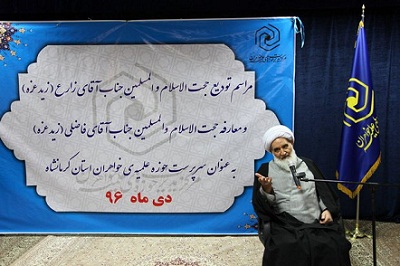 مراسم تودیع حجت الاسلام والمسلمین جناب آقای زارع (زید عزه)
و معارفه حجت الاسلام والمسلمین جناب آقای فاضلی (زید عزه)
به عنوان سرپرست حوزه علمیه‌ی خواهران استان کرمانشاه
دی ماه ۹۶